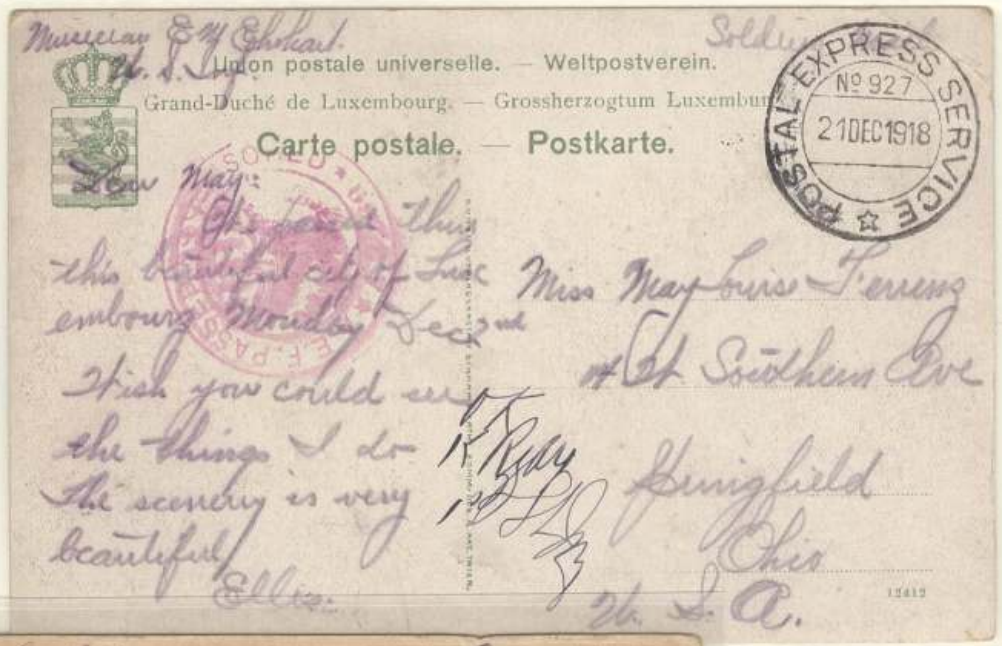 Musician E M Ehrhart.
U. S. Inf.
Soldier's
Union postale universelle. — Weltpostverein.
Grand-Duché de Luxembourg. — Grossherzogtum Luxemburg
Carte postale. — Postkarte.
POSTAL EXPRESS SERVICE
No 927
21 DEC 1918
Dear May:
We passed thru
this beautiful city of Lux
embourg Monday Dec 2nd
Wish you could see
the things I do
The scenery is very
beautiful
Ellis
A.E.F. PASSED
Miss May Louise Ferrens
W Southern Ave
Springfield
Ohio
U. S. A.
OK
12412